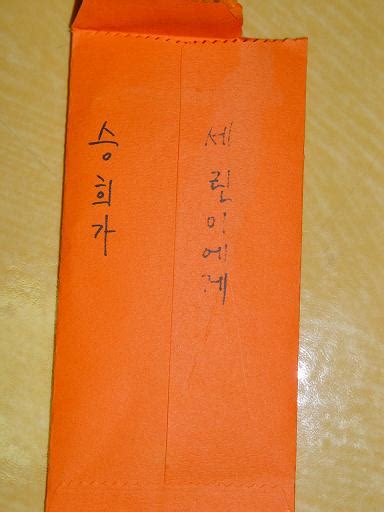 세린이에게
승희가